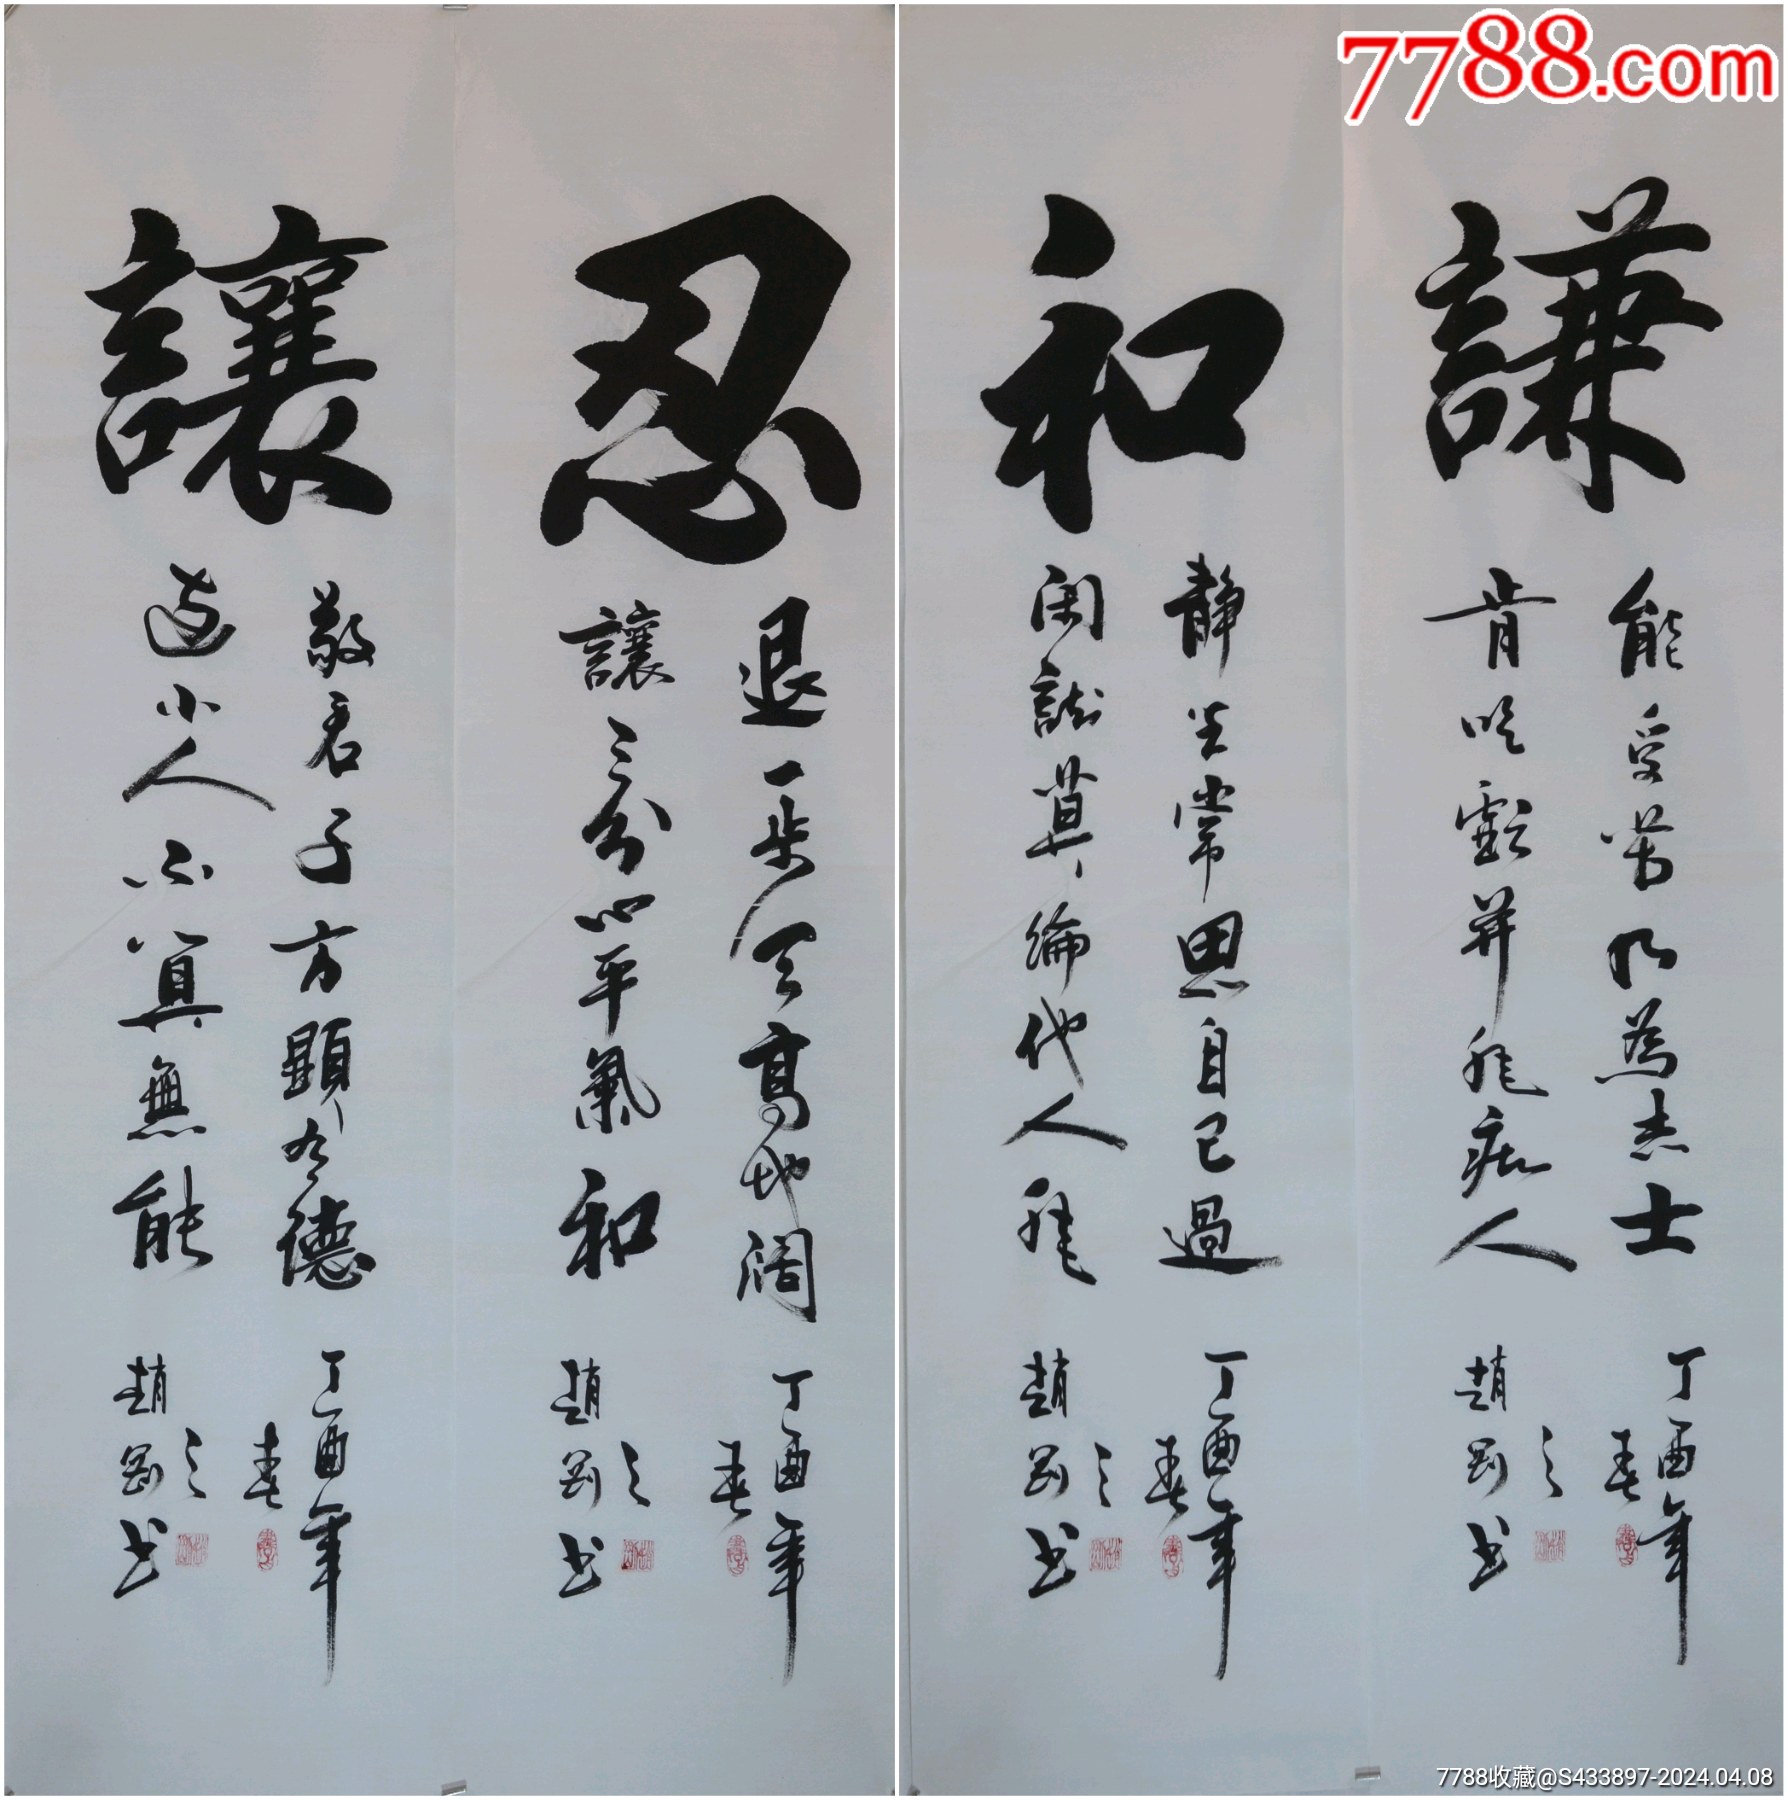 7788.com
謙
能受苦乃為志士
肯吃虧并非痴人
丁酉年春
趙之剛书
和
静坐常思自己過
閑談莫論他人非
丁酉年春
趙之剛书
忍
退一步天高地阔
讓三分心平氣和
丁酉年春
趙之剛书
讓
敬君子方顯有德
小人不算無能
丁酉年春
趙之剛书
7788收藏@S433897-2024.04.08